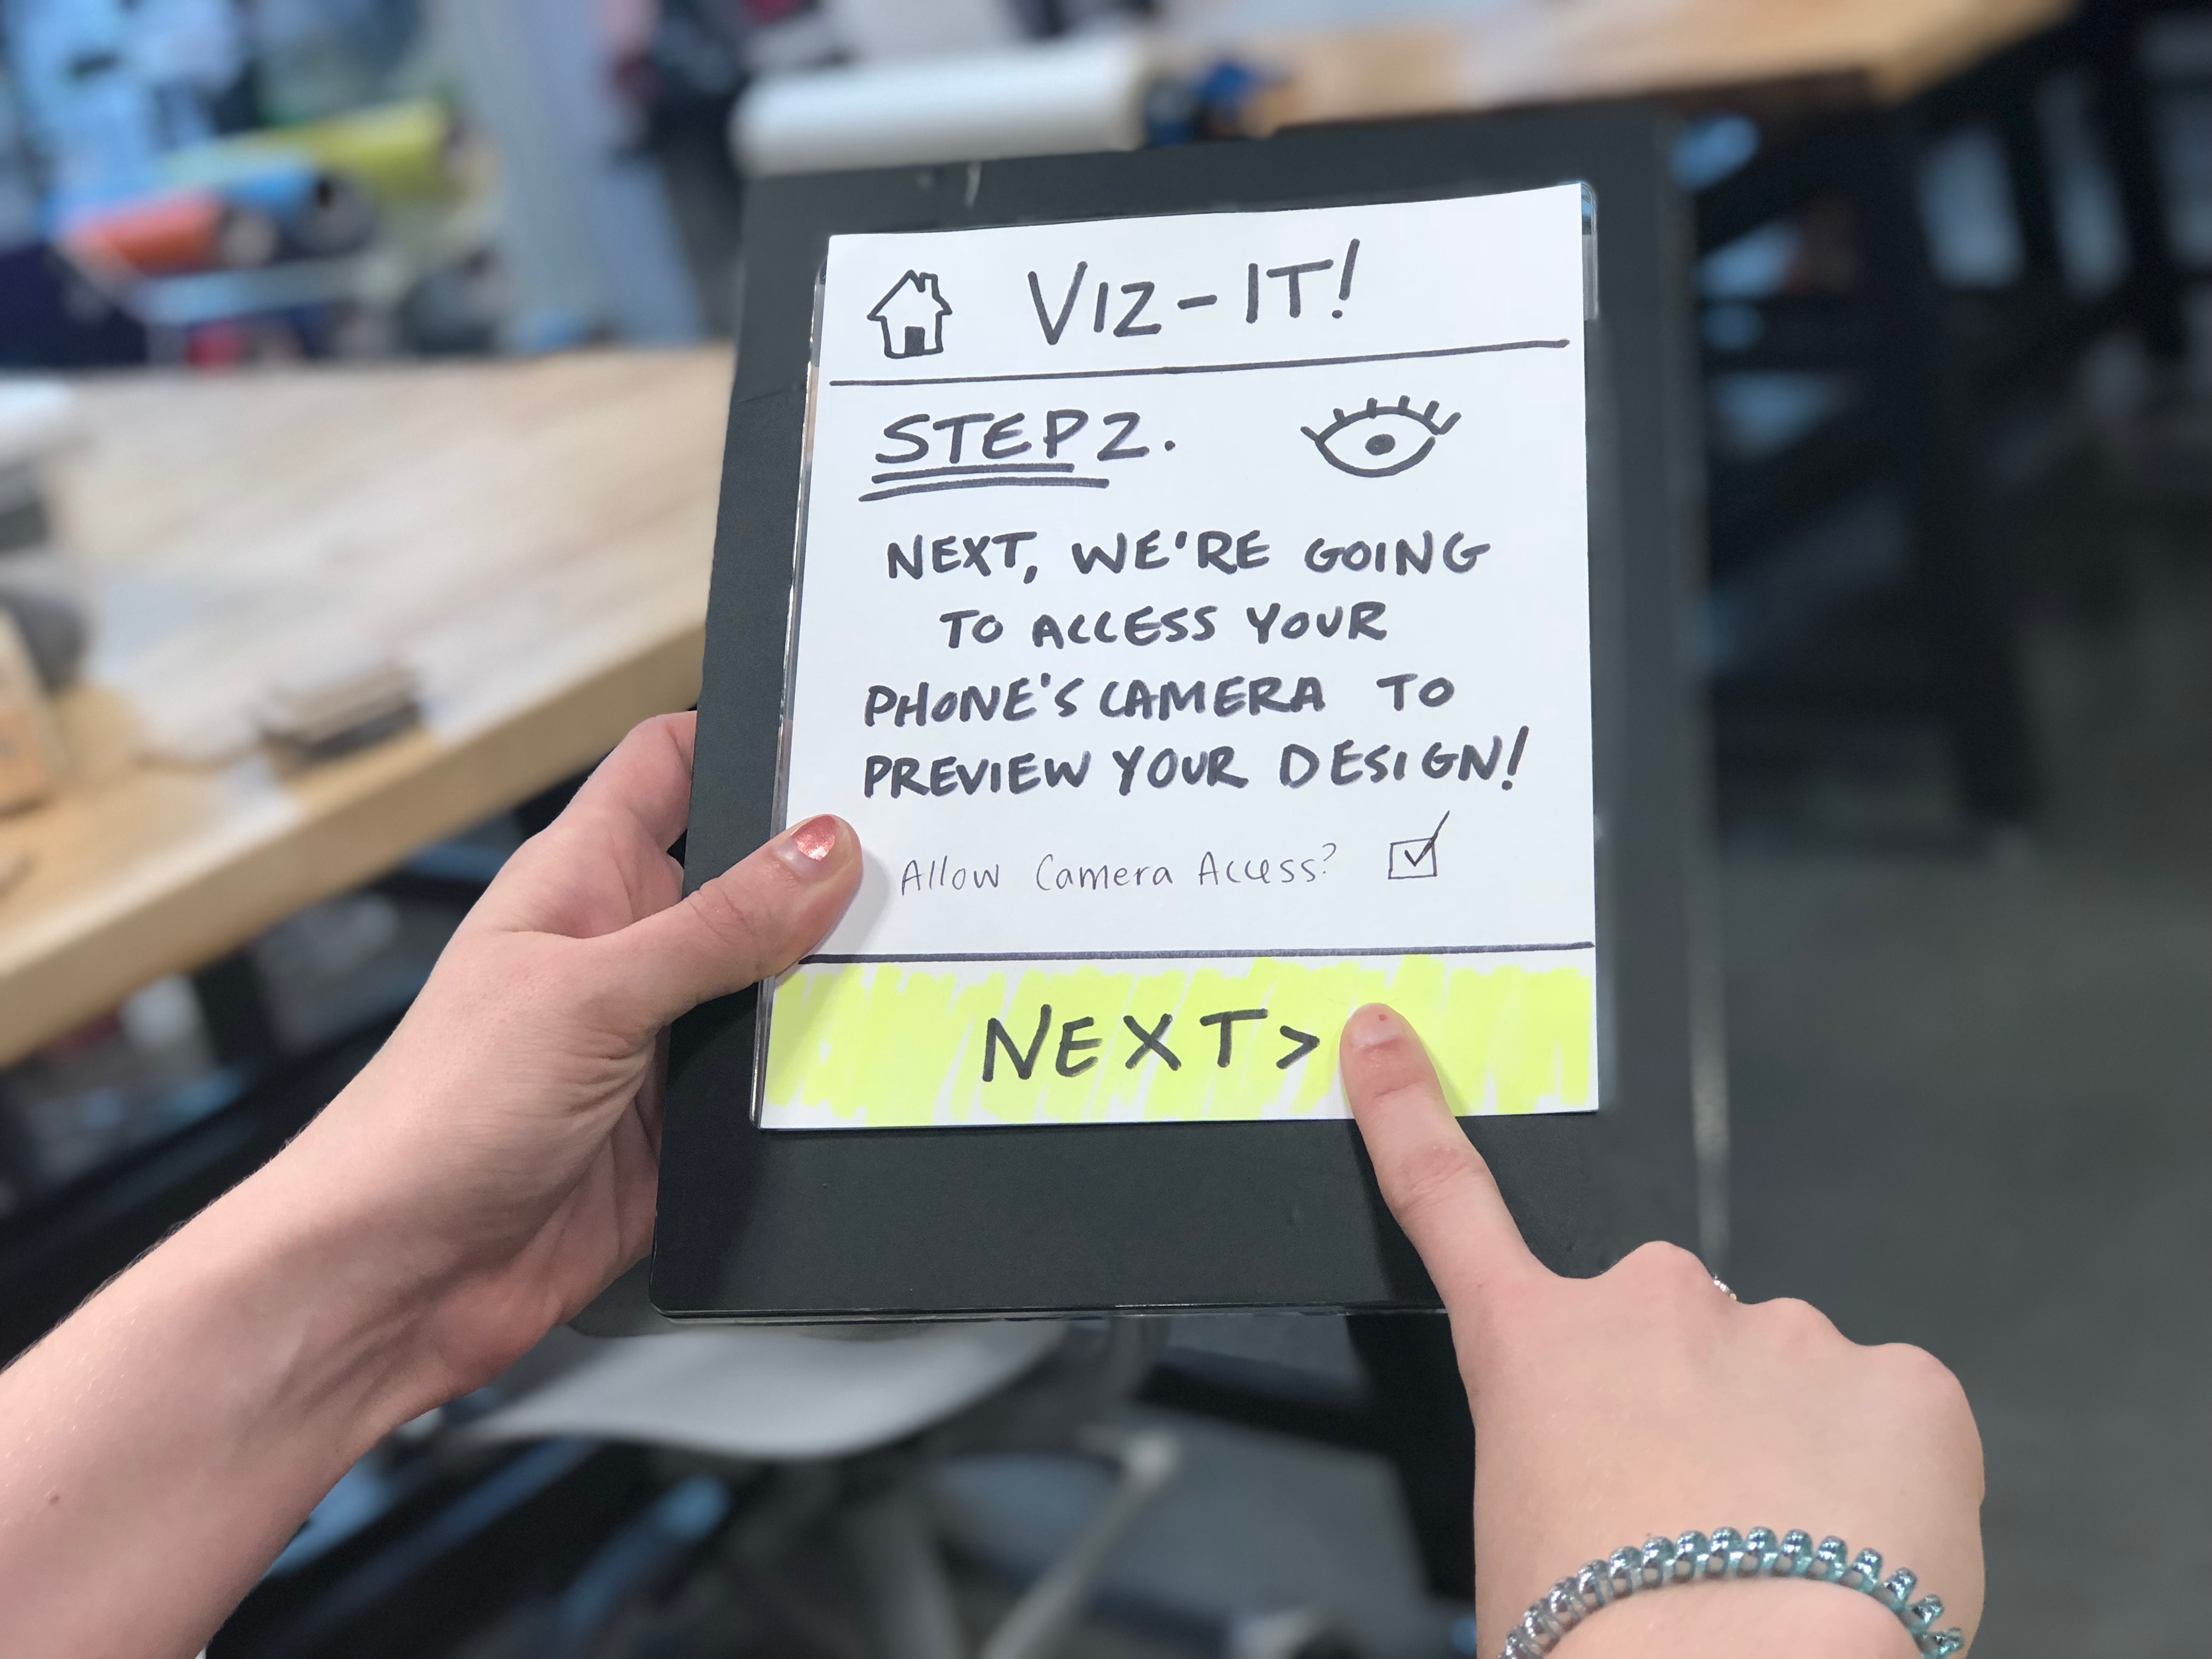 VIZ-IT!
STEP 2.
NEXT, WE'RE GOING
TO ACCESS YOUR
PHONE'S CAMERA TO
PREVIEW YOUR DESIGN!
Allow Camera Access?
NEXT>